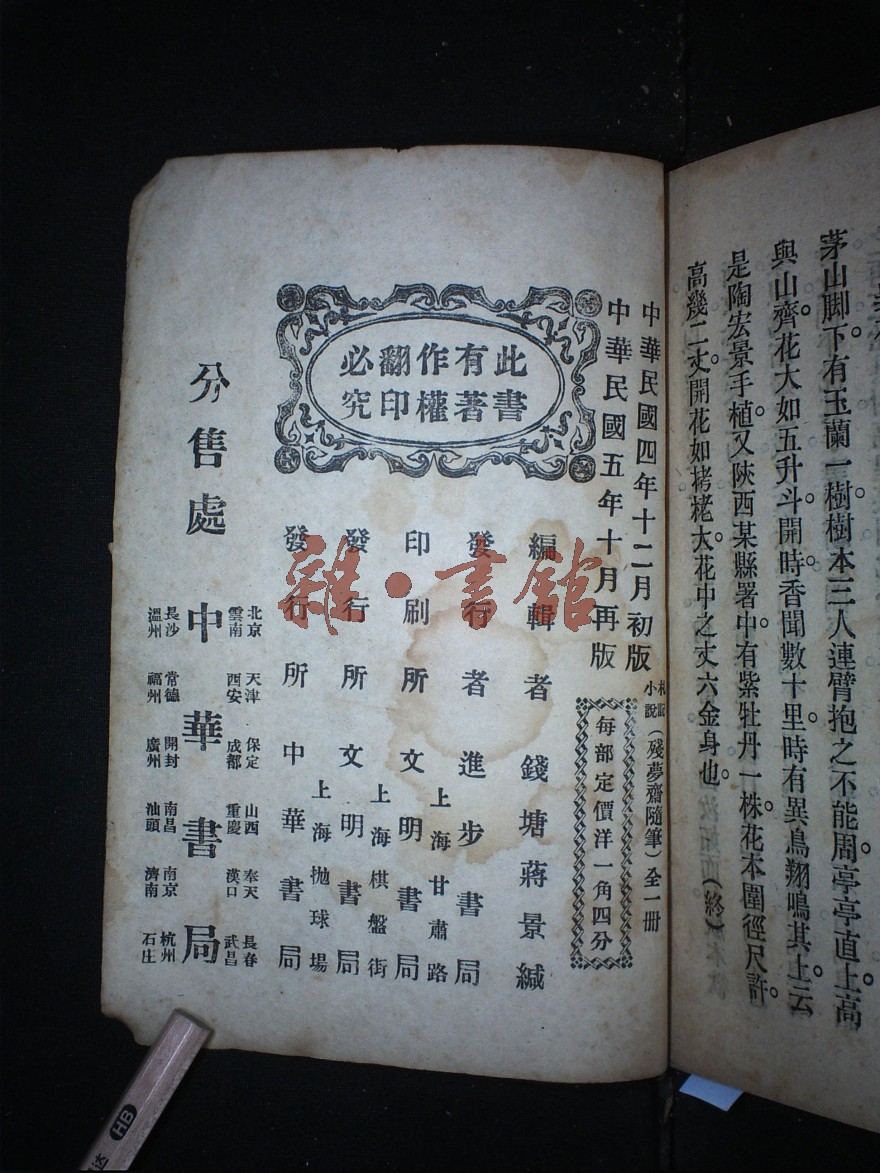 茅山脚下有玉蘭一樹。樹本三人連臂抱之不能周。亭亭直上。高
與山齊。花大如五升斗。開時香聞數十里。時有異鳥翔鳴其上。云
是陶宏景手植。又陝西某縣署中有紫牡丹一株。花本圍徑尺許。
高幾二丈。開花如栲栳大。花中之丈六金身也。
(終)
中華民國四年十二月初版
中華民國五年十月再版
札記小說(殘夢齋隨筆)全一冊
每部定價洋一角四分
此書有著作權翻印必究
編輯者 錢塘蔣景緘
發行者 進步書局
上海甘肅路
印刷所 文明書局
上海棋盤街
發行所 文明書局
上海拋球場
發行所 中華書局
分售處 中華書局
北京 天津 保定 山西 奉天 長春
雲南 西安 成都 重慶 漢口 武昌
長沙 常德 開封 南昌 南京 杭州
溫州 福州 廣州 汕頭 濟南 石庄
雜·書館
HB